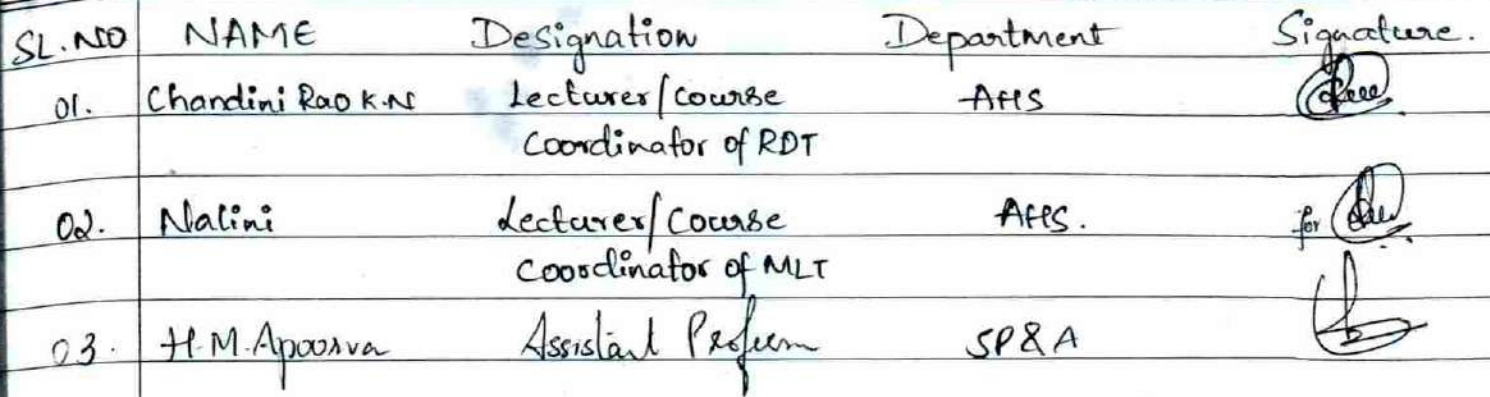 SL.NO NAME Designation Department Signature.
01. Chandini Rao K.N Lecturer/course AHS
Coordinator of RDT
02. Nalini Lecturer/Course AHS. for
Coordinator of MLT
03. H.M.Apoorva Assistant SP&A